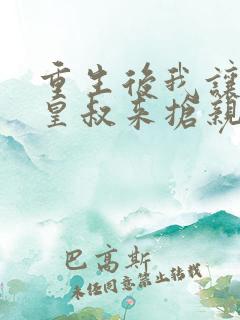 重生後我讓
皇叔來搶親
巴高斯
未經同意禁止轉載